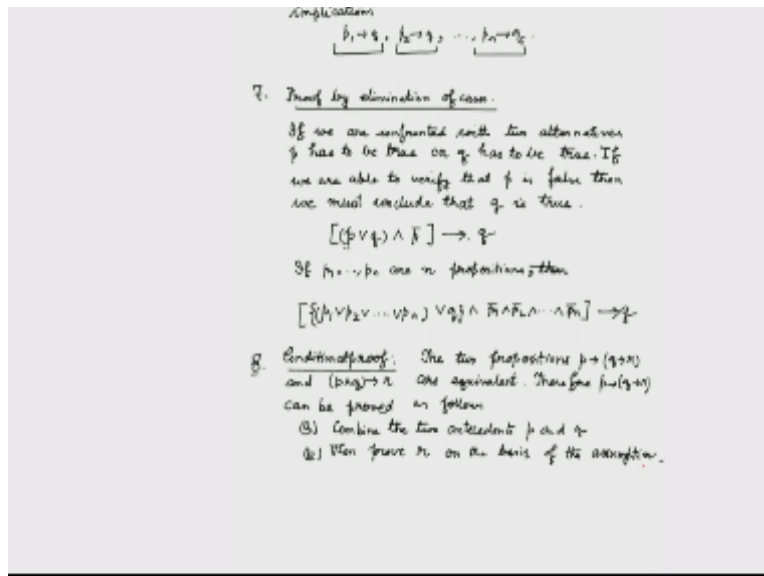 implications
p₁→q, p₂→q, ..., pₙ→q.
7. Proof by elimination of cases.
If we are confronted with two alternatives
p has to be true or q has to be true. If
we are able to verify that p is false then
we must conclude that q is true.
[(p∨q) ∧ p̅] → q
If p₁, ..., pₙ are n propositions, then
[{(p₁∨p₂∨...∨pₙ) ∨q} ∧ p̅₁∧p̅₂∧...∧p̅ₙ] →q
8. Conditional proof: The two propositions p→(q→r)
and (p∧q)→r are equivalent. Therefore p→(q→r)
can be proved as follows
(a) Combine the two antecedents p and q
(b) Then prove r, on the basis of the assumption.